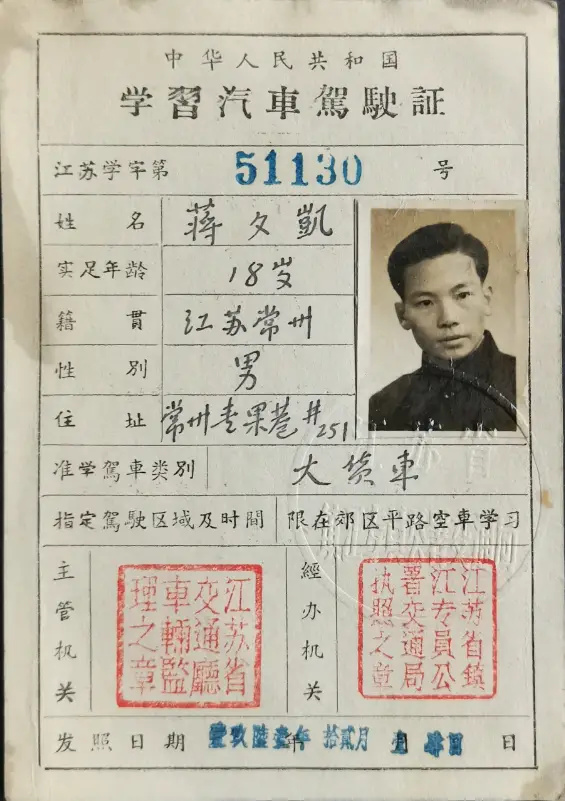 中华人民共和国
学習汽車駕駛証
江苏学字第 51130 号
姓名 蒋夕凱
实足年龄 18岁
籍貫 江苏常州
性別 男
住址 常州青果巷#251
准学駕車类別 大货車
指定駕駛区域及时間 限在郊区平路空車学习
主管机关 江苏省交通廳車輛監理之章
经办机关 江苏省鎮江专員公署交通局执照之章
发照日期 壹玖陸壹年 拾貳月 日